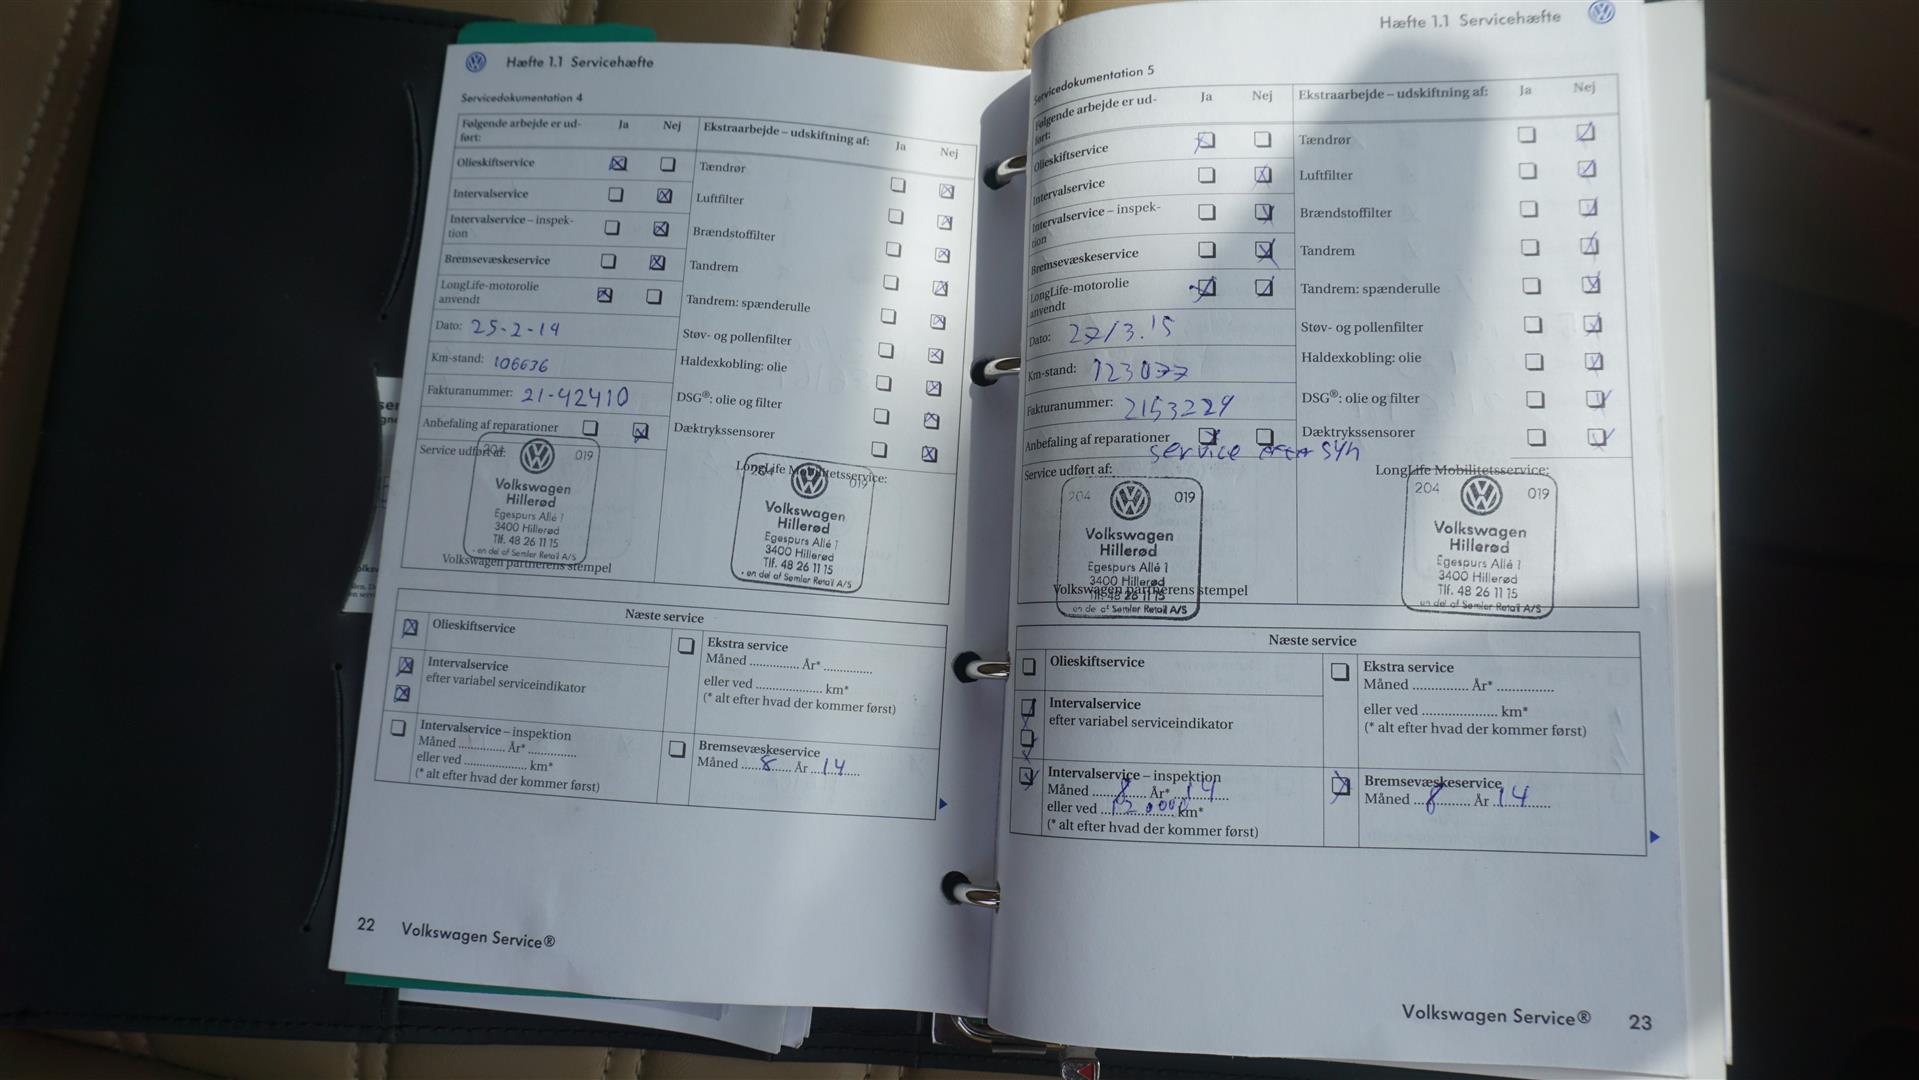 Hæfte 1.1 Servicehæfte
Servicedokumentation 4
Følgende arbejde er ud-
ført:
Ja
Nej
Ekstraarbejde – udskiftning af:
Ja
Nej
Olieskiftservice
Tændrør
Intervalservice
Luftfilter
Intervalservice – inspek-
tion
Brændstoffilter
Bremsevæskeservice
Tandrem
LongLife-motorolie
anvendt
Tandrem: spænderulle
Dato: 25-2-14
Støv- og pollenfilter
Km-stand: 106636
Haldexkobling: olie
Fakturanummer: 21-42410
DSG®: olie og filter
Anbefaling af reparationer
Dæktrykssensorer
Service udført af:
LongLife Mobilitetsservice:
204 019
Volkswagen
Hillerød
Egespurs Allé 1
3400 Hillerød
Tlf. 48 26 11 15
- en del af Semler Retail A/S
Volkswagen partnerens stempel
204 019
Volkswagen
Hillerød
Egespurs Allé 1
3400 Hillerød
Tlf. 48 26 11 15
- en del af Semler Retail A/S
Næste service
Olieskiftservice
Intervalservice
efter variabel serviceindikator
Intervalservice – inspektion
Måned .............. År* ..............
eller ved .................... km*
(* alt efter hvad der kommer først)
Ekstra service
Måned .............. År* ..............
eller ved .................... km*
(* alt efter hvad der kommer først)
Bremsevæskeservice
Måned 8 År 14
22 Volkswagen Service®
Hæfte 1.1 Servicehæfte
Servicedokumentation 5
Følgende arbejde er ud-
ført:
Ja
Nej
Ekstraarbejde – udskiftning af:
Ja
Nej
Olieskiftservice
Tændrør
Intervalservice
Luftfilter
Intervalservice – inspek-
tion
Brændstoffilter
Bremsevæskeservice
Tandrem
LongLife-motorolie
anvendt
Tandrem: spænderulle
Dato: 27/3.15
Støv- og pollenfilter
Km-stand: 123077
Haldexkobling: olie
Fakturanummer: 2153229
DSG®: olie og filter
Anbefaling af reparationer
Dæktrykssensorer
service efter syn
Service udført af:
LongLife Mobilitetsservice:
204 019
Volkswagen
Hillerød
Egespurs Allé 1
3400 Hillerød
Tlf. 48 26 11 15
en del af Semler Retail A/S
Volkswagen partnerens stempel
204 019
Volkswagen
Hillerød
Egespurs Allé 1
3400 Hillerød
Tlf. 48 26 11 15
en del af Semler Retail A/S
Næste service
Olieskiftservice
Intervalservice
efter variabel serviceindikator
Intervalservice – inspektion
Måned 8 År* 14
eller ved 12.000 km*
(* alt efter hvad der kommer først)
Ekstra service
Måned .............. År* ..............
eller ved .................... km*
(* alt efter hvad der kommer først)
Bremsevæskeservice
Måned 8 År 14
Volkswagen Service® 23